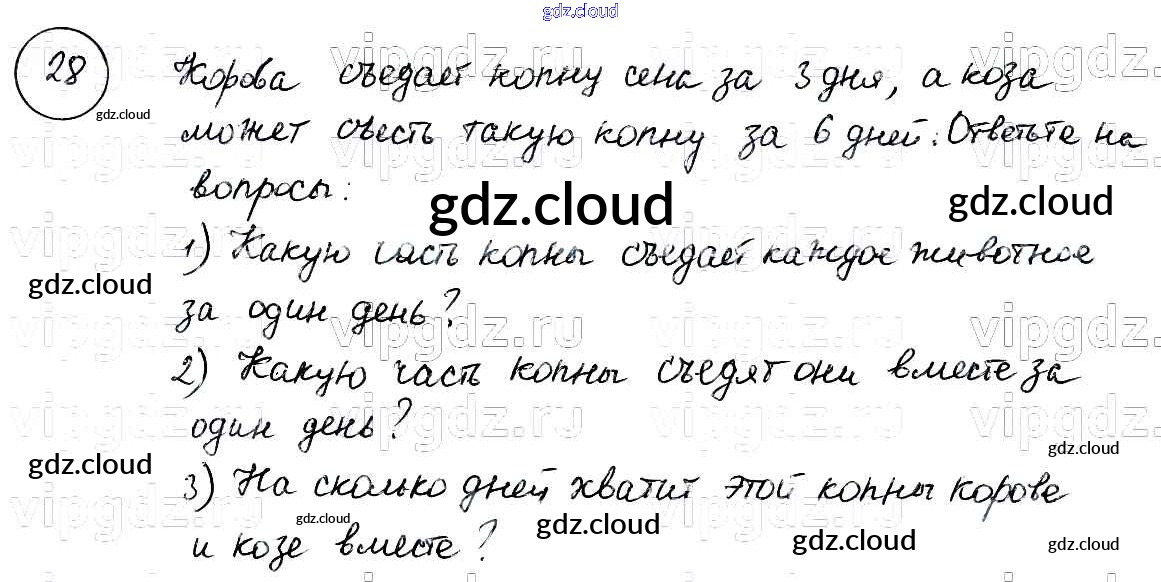 gdz.cloud
28 Корова съедает копну сена за 3 дня, а коза
gdz.cloud
может съесть такую копну за 6 дней. Ответьте на
вопросы:
gdz.cloud gdz.cloud
1) Какую часть копны съедает каждое животное
gdz.cloud
за один день?
vipgdz.ru vipgdz.ru
2) Какую часть копны съедят они вместе за
один день?
gdz.cloud gdz.cloud
3) На сколько дней хватит этой копны корове
gdz.cloud gdz.cloud gdz.cloud gdz.cloud
и козе вместе?